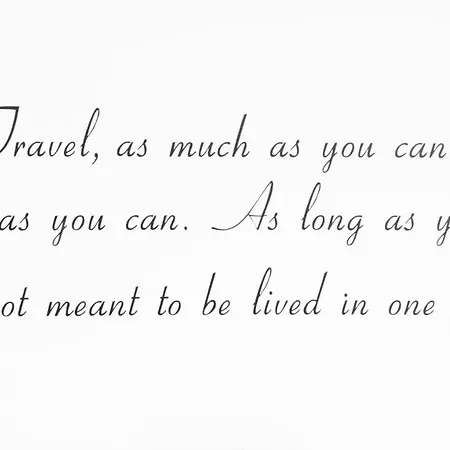 Travel, as much as you can
as you can. As long as y
ot meant to be lived in one